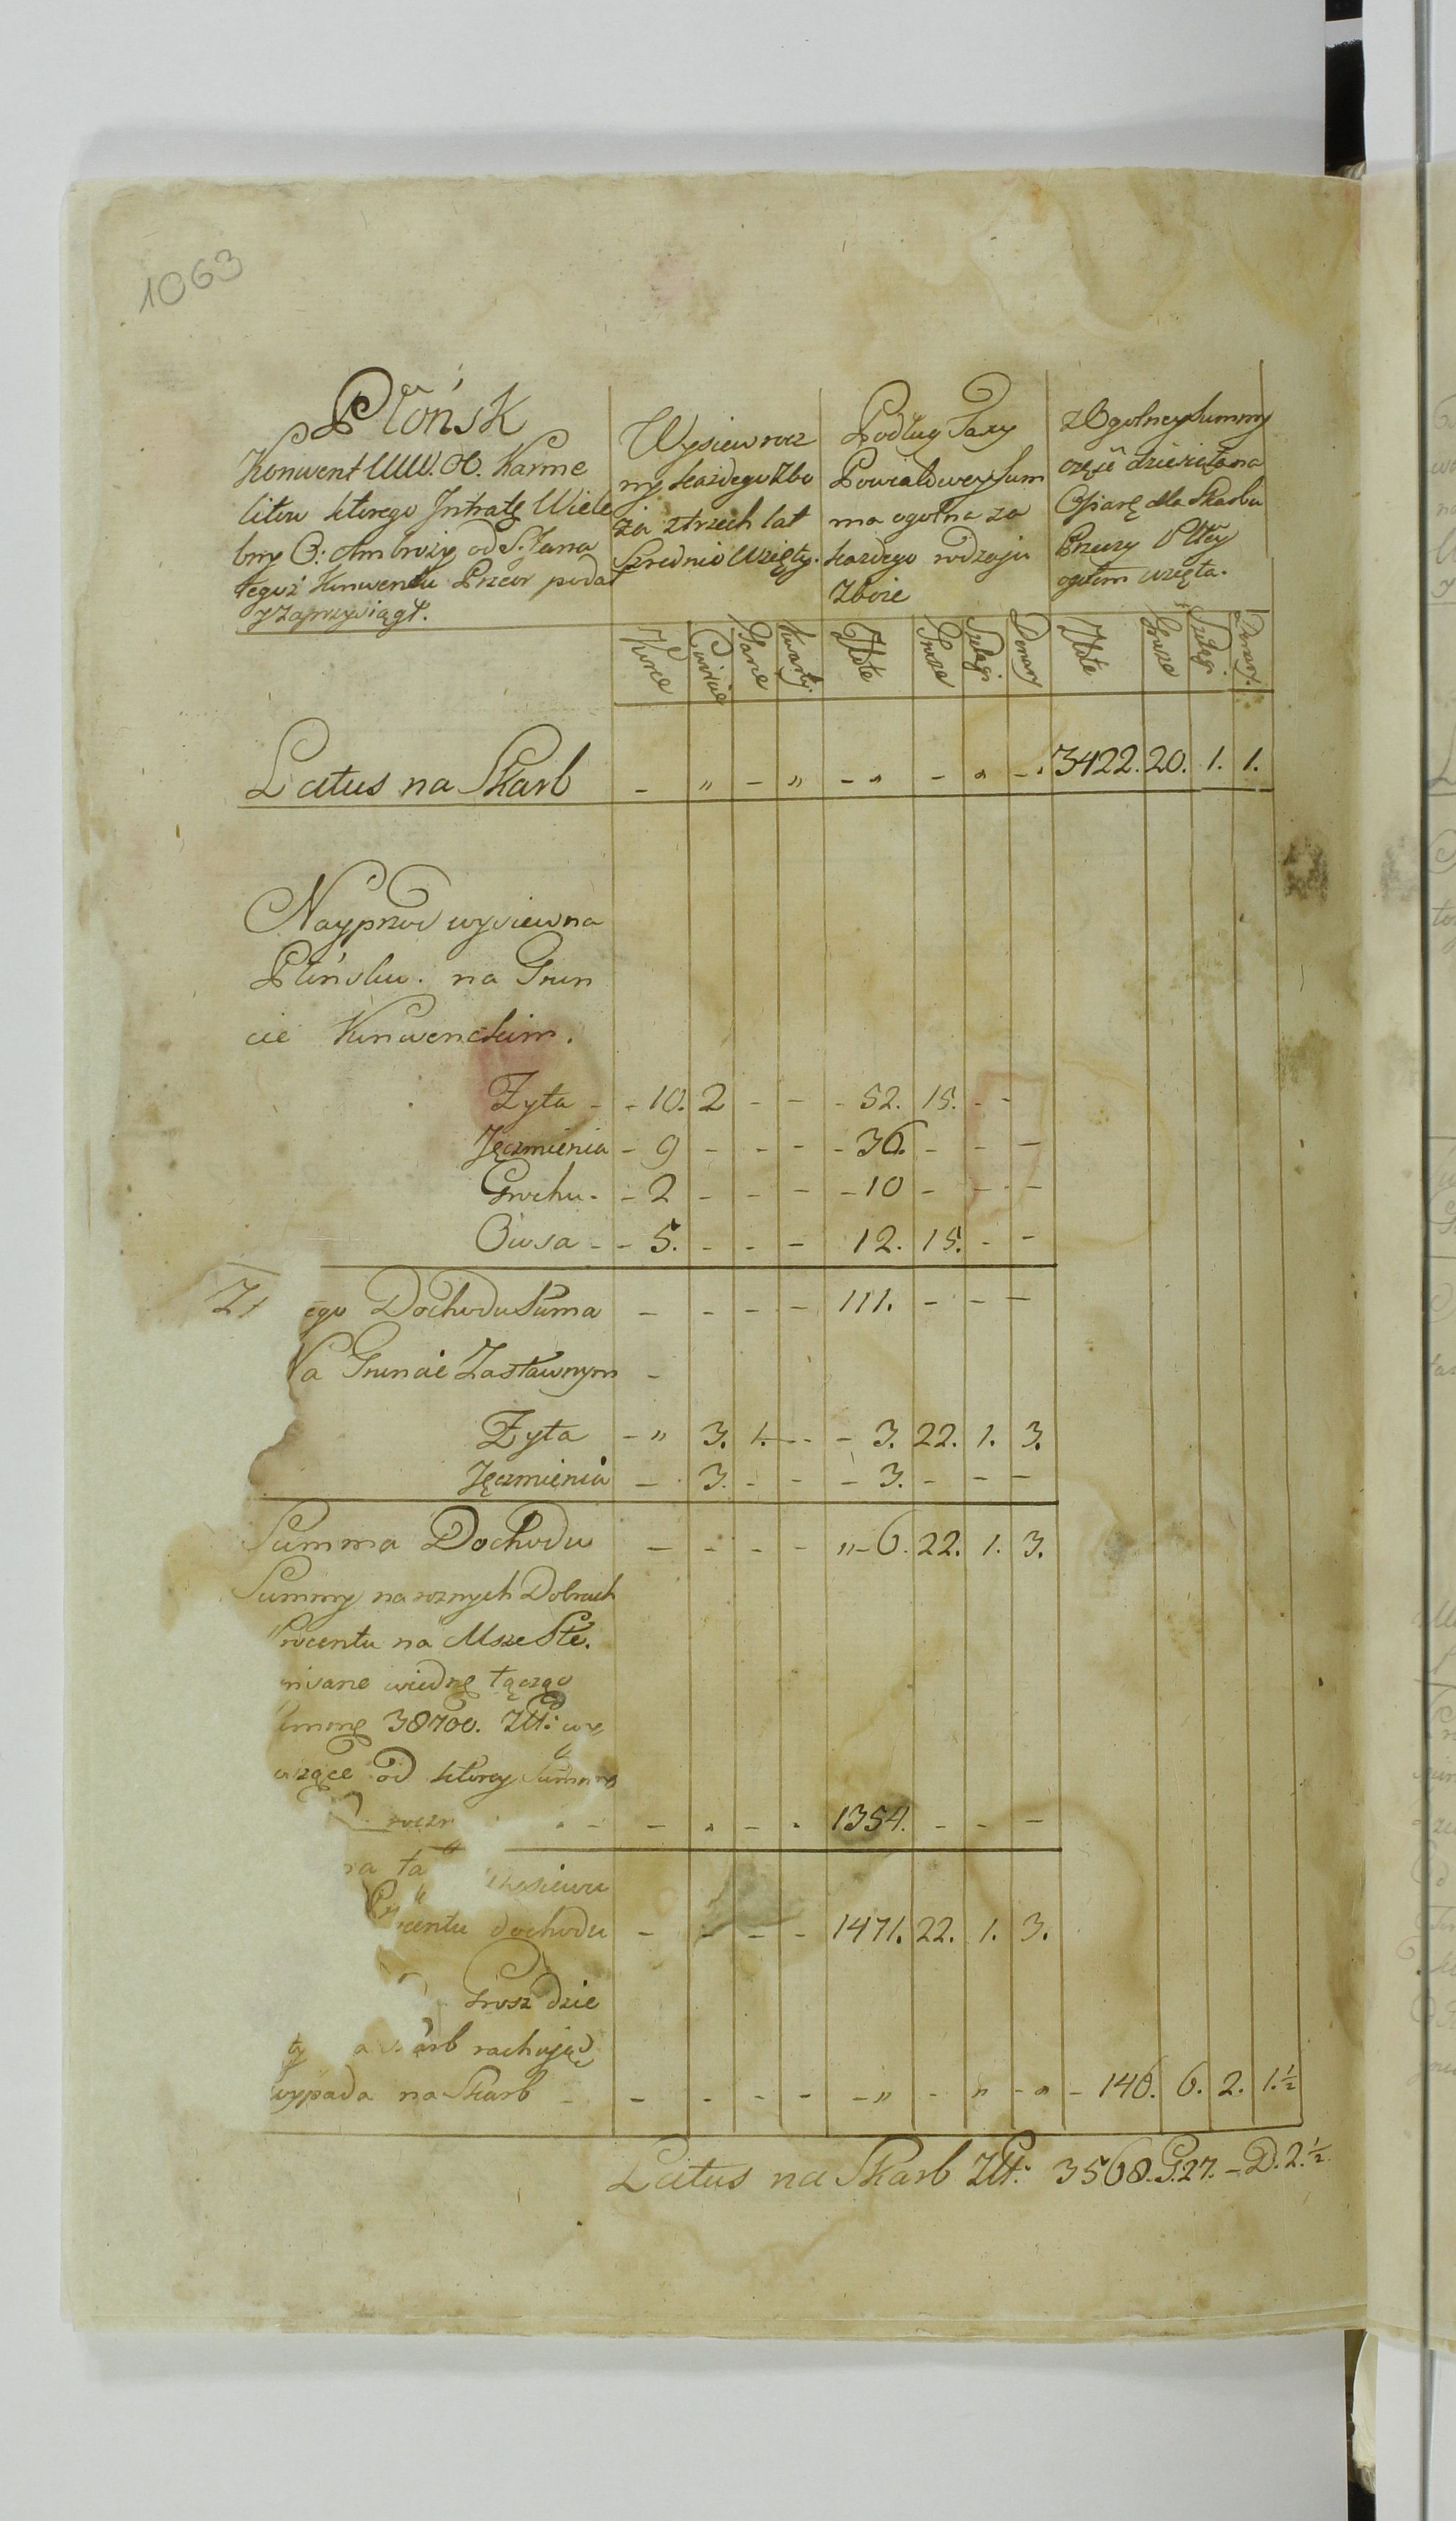 1063
Płońsk
Konwent WW. OO. Karme
litow ktorego Jntratę Wiele
bny O: Ambroży od S. Jana
tegoż Konwentu Przeor podał
y zaprzysiągł.
Wysiew rocz
ny każdego Zbo
ża z trzech lat
Szrednio wzięty.
Podług Taxy
Powiatowey Sum
ma ogolna za
każdego rodzaju
Zboże
z Ogolney Summy
część dziesiąta na
Ofiarę dla Skarbu
Przeszy Pltey
ogołem wzięta.
Korce Cwierci Garce Kwarty Złote Grosze Szelągi Denary Złote Grosze Szelągi Denary.
Latus na Skarb - „ - „ - „ - „ - 3422. 20. 1. 1.
Nayprzod wysiew na
Płońsku. na Grun
cie Konwenckim.
Zyta - - 10. 2 - - - 52. 15. - -
Jęczmienia - 9 - - - - 36. - - -
Grochu - - 2 - - - - 10 - - -
Owsa - - 5. - - - 12. 15. - -
ego Dochodu Suma - - - - 111. - - -
a Gruncie Zastawnym -
Zyta - „ 3. 1. - - 3. 22. 1. 3.
Jęczmienia - 3. - - - 3. - - -
Summa Dochodu - - - - „ - 6. 22. 1. 3.
Summy na roznych Dobrach
rocentu na Msze Ste.
nisane wiedną łącząc
ummę 38700. Złt: wy
noszące od ktorey Summy
roczn - - - - 1354. - - -
na ta Wysiewu
centu dochodu - - - - 1471. 22. 1. 3.
Grosz dzie
ty a arb rachując
wypada na Skarb - - - - - - „ - „ - „ - 146. 6. 2. 1.½
Latus na Skarb Złt: 3568. G. 27. - D. 2.½